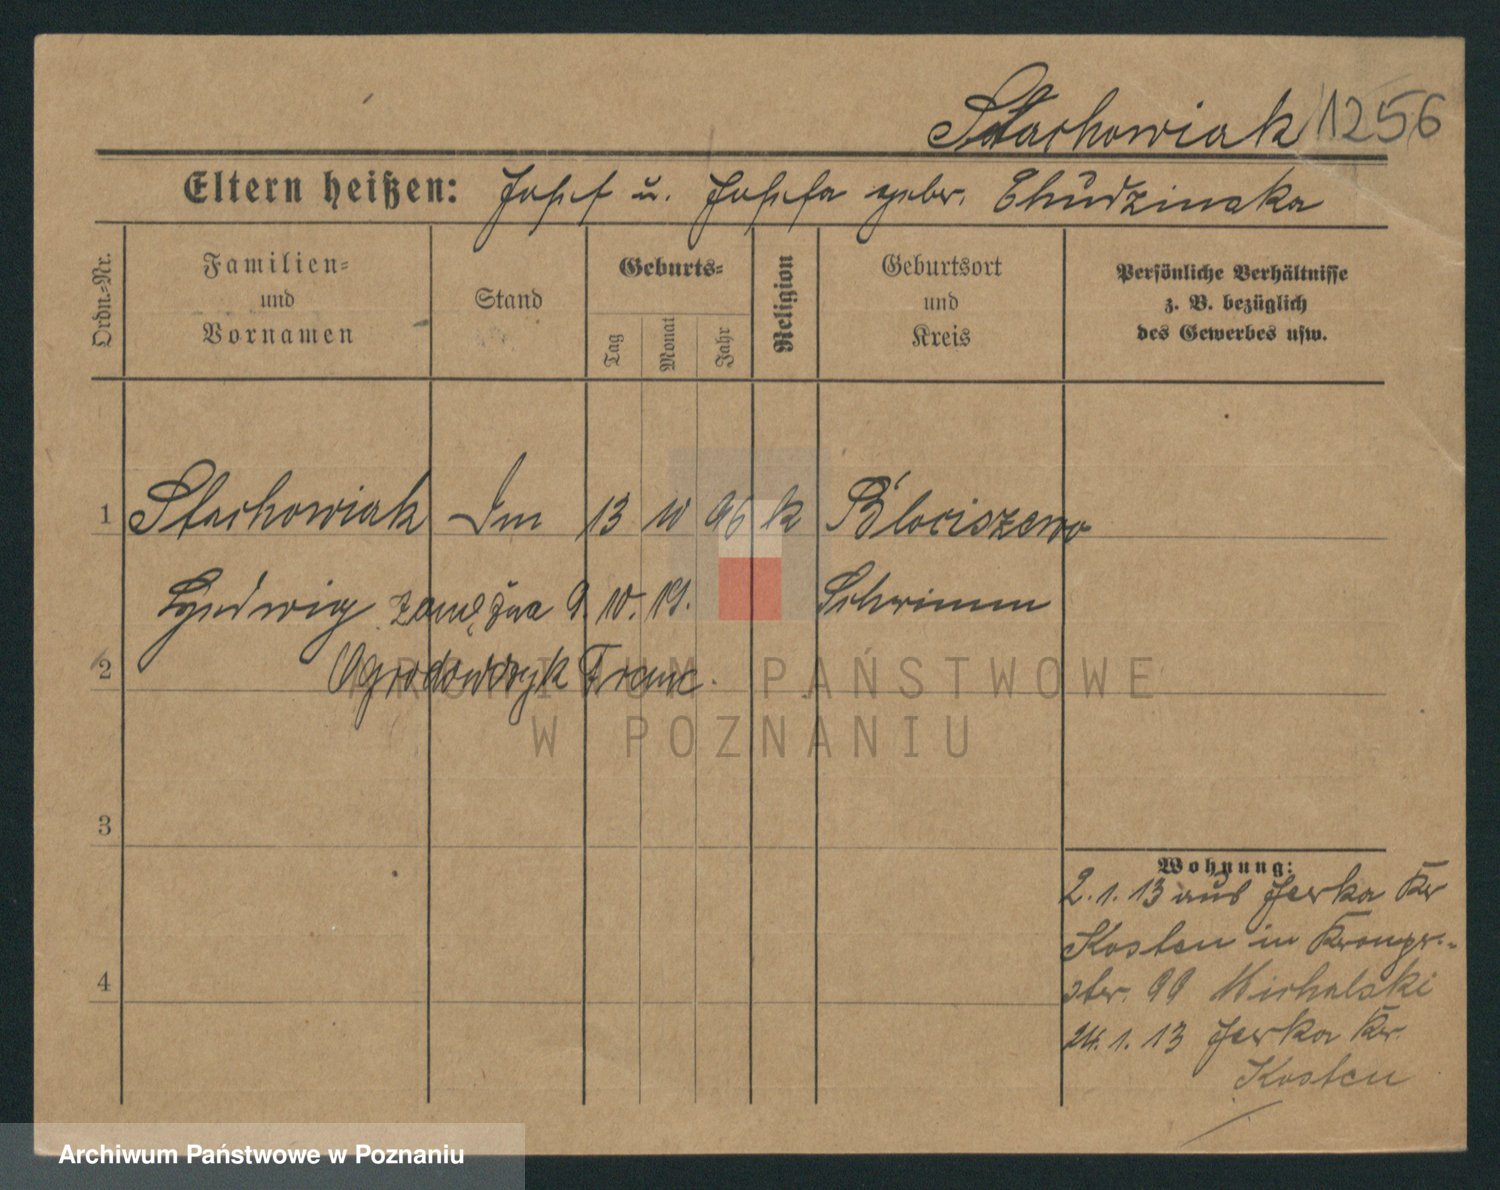 Stachowiak 1256
Eltern heißen: Josef u. Josefa gebr. Chudzinska
Ordn.-Nr.
Familien-
und
Vornamen
Stand
Geburts-
Tag
Monat
Jahr
Religion
Geburtsort
und
Kreis
Persönliche Verhältnisse
z. B. bezüglich
des Gewerbes usw.
1 Stachowiak 13 10 96 k Błociszewo
zamężna 9. 10. 19. Schrimm
2 Ogrodowczyk Franc.
3
4
Wohnung:
2. 1. 13 aus Jerka Kr
Kosten in Kronpr.-
str. 99 Michalski
24. 1. 13 Jerka Kr.
Kosten
ARCHIWUM PAŃSTWOWE
W POZNANIU
Archiwum Państwowe w Poznaniu